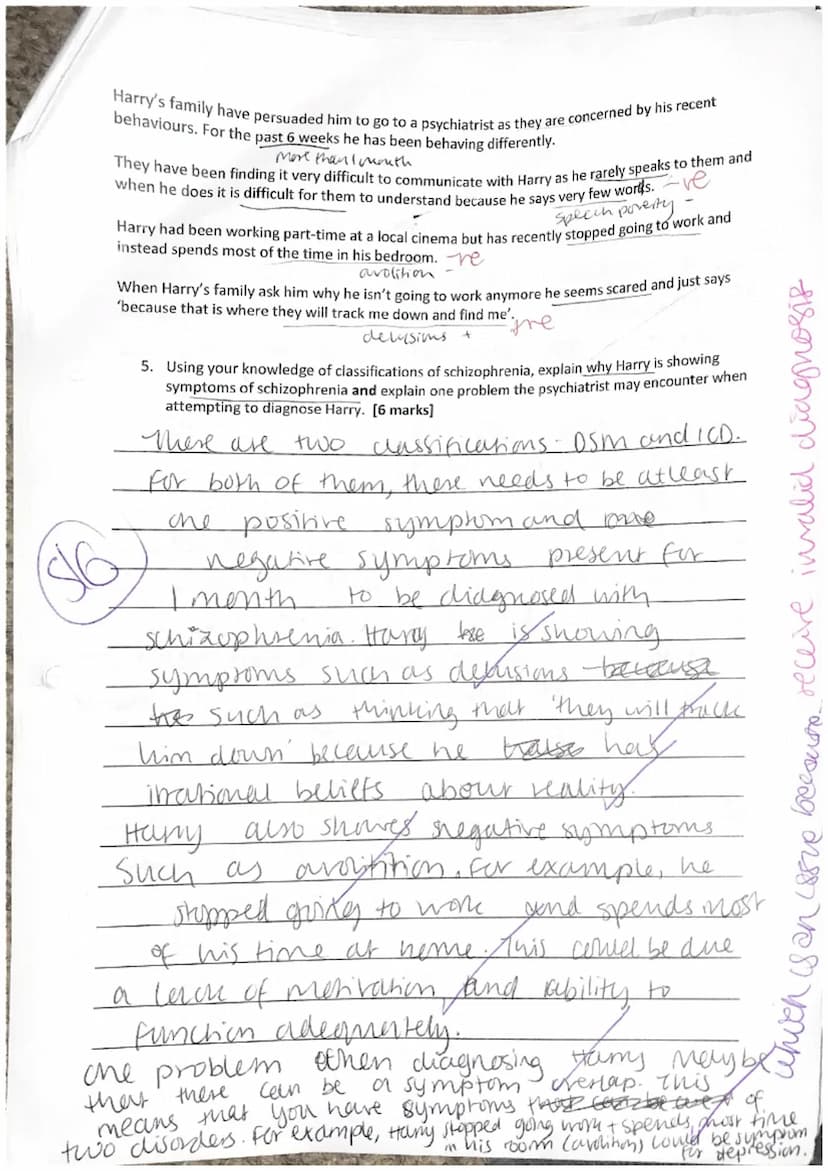 Harry's family have persuaded him to go to a psychiatrist as they are concerned by his recent
behaviours. For the past 6 weeks he has been behaving differently.
more than 1 month
They have been finding it very difficult to communicate with Harry as he rarely speaks to them and
when he does it is difficult for them to understand because he says very few words. -ve
speech poverty -
Harry had been working part-time at a local cinema but has recently stopped going to work and
instead spends most of the time in his bedroom. -ve
avolition -
When Harry's family ask him why he isn't going to work anymore he seems scared and just says
'because that is where they will track me down and find me'. +ve
delusions +
5. Using your knowledge of classifications of schizophrenia, explain why Harry is showing
symptoms of schizophrenia and explain one problem the psychiatrist may encounter when
attempting to diagnose Harry. [6 marks]
There are two classifications - DSM and ICD.
For both of them, there needs to be atleast
one positive symptom and
negative symptoms present for
5/6
1 month to be didgnosed with
schizophrenia. Harry is showing
symptoms such as delusions - because
such as thinking that 'they will track
him down' because he has
irrational beliefs about reality.
Harry also shows negative symptoms
such as avolitition. For example, he
stopped going to work and spends most
of his time at home. This could be due
a lack of motivation, and ability to
function adequately.
One problem when diagnosing Harry may be
that there can be a symptom overlap. This
means that you have symptoms of
two disorders. For example, Harry stopped going work + spends most time
in his room (avolition) could be symptom
for depression.
which is an issue because receive invalid diagnosis